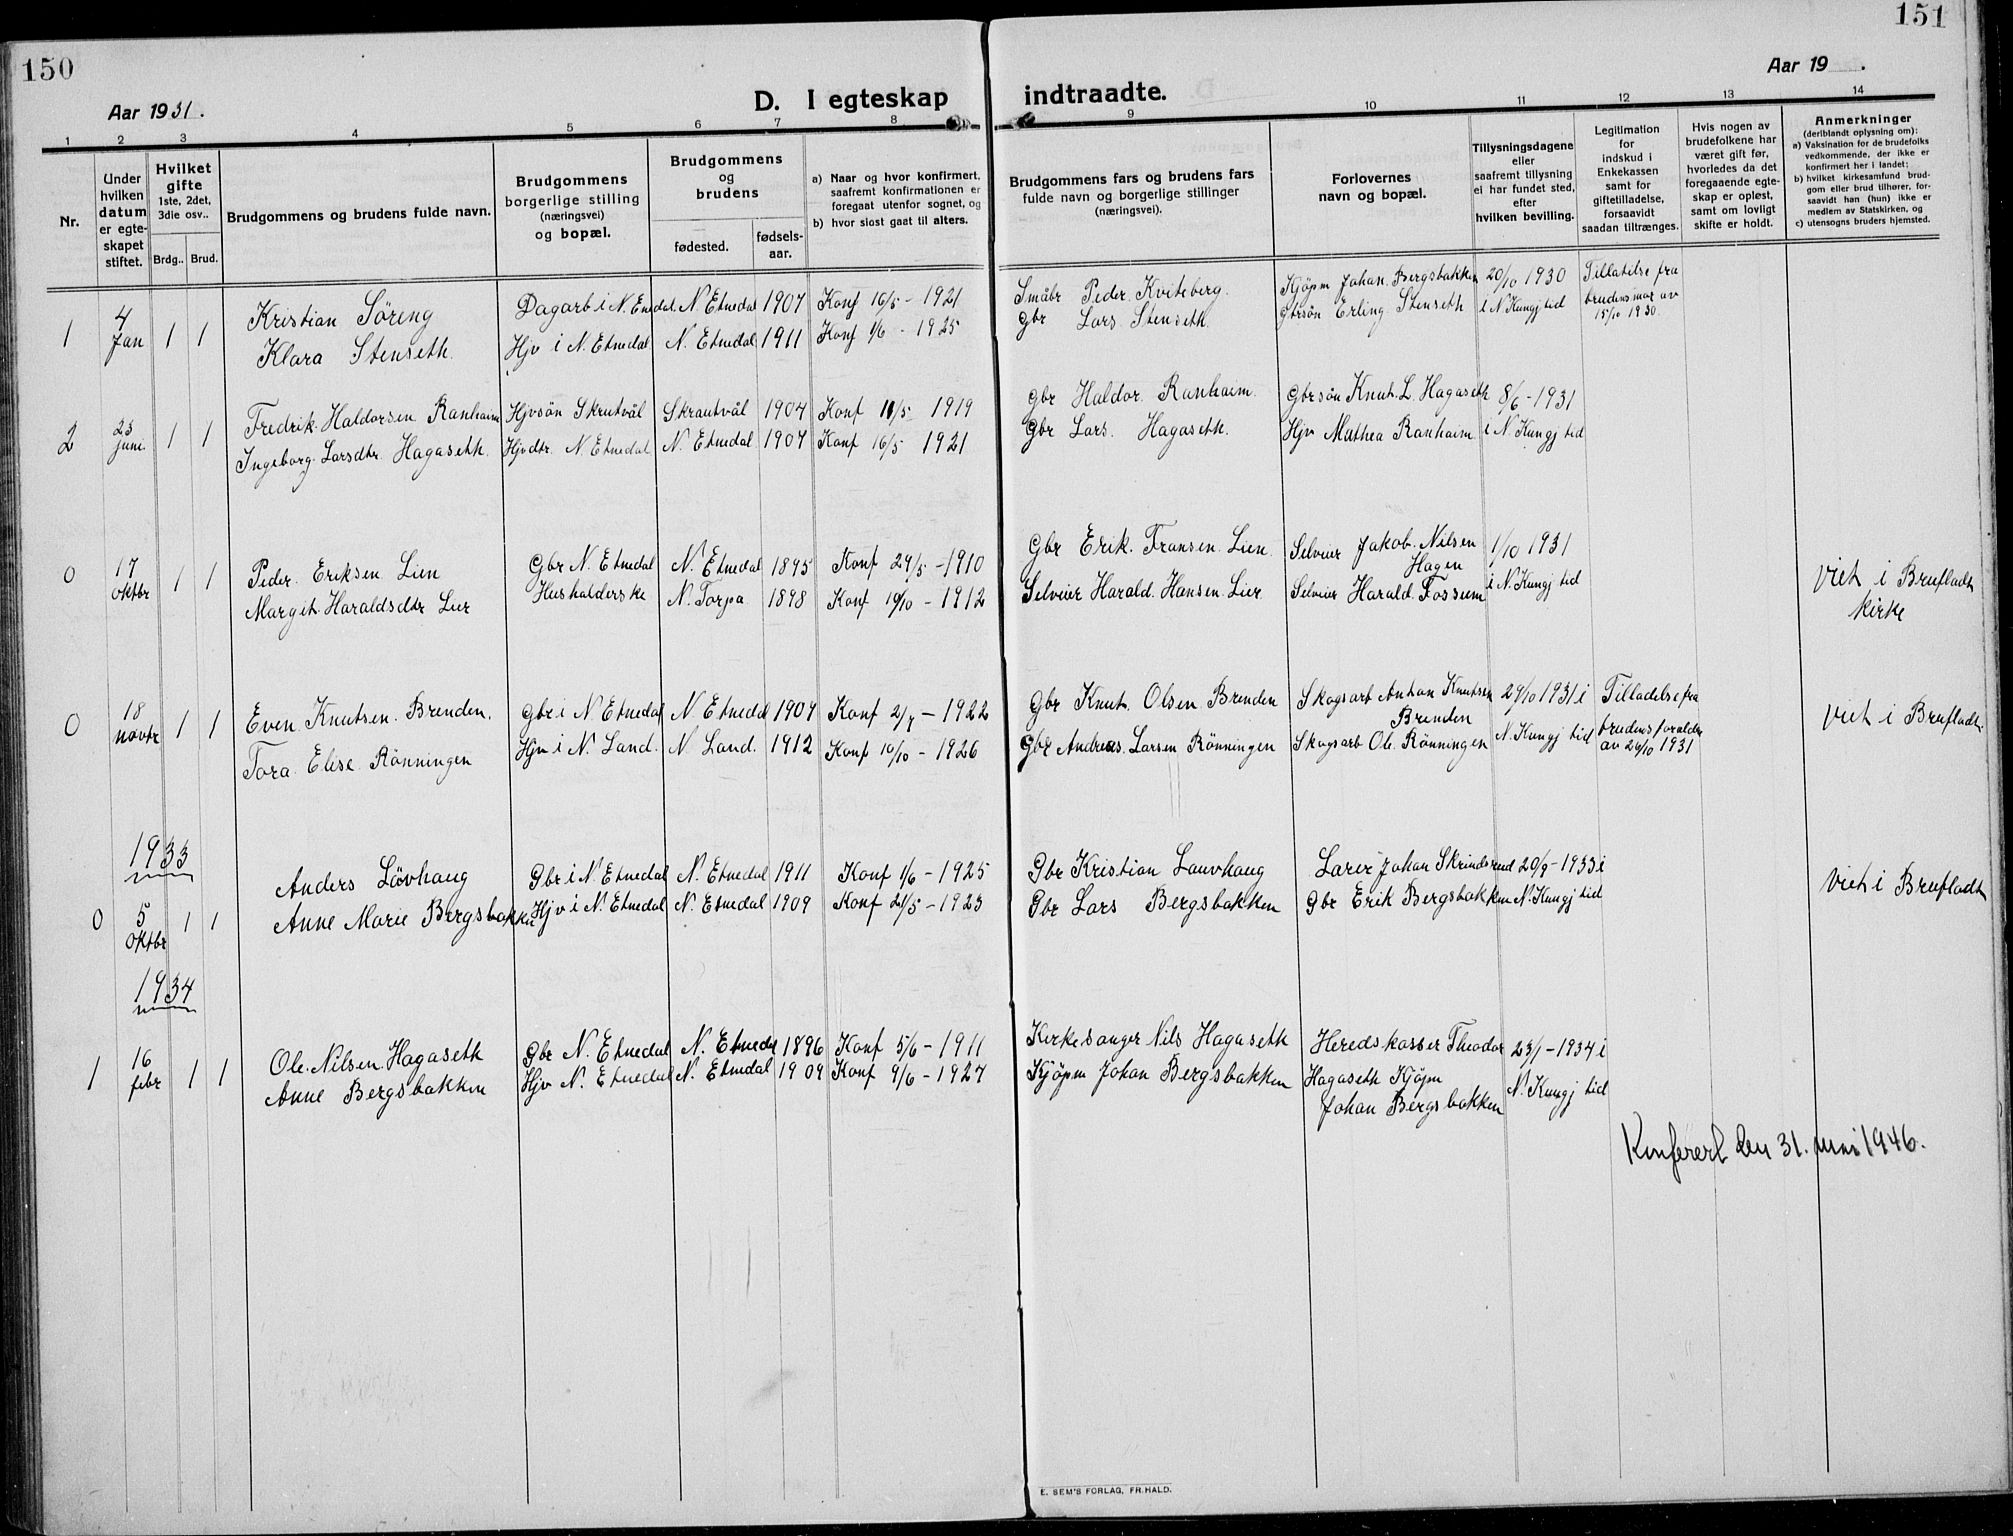 150
151
Aar 1931.
D. I egteskap indtraadte.
Aar 19 .
1 2 3 4 5 6 7 8 9 10 11 12 13 14
Nr.
Under hvilken datum er egte-skapet stiftet.
Hvilket gifte 1ste, 2det, 3die osv..
Brdg.. Brud.
Brudgommens og brudens fulde navn.
Brudgommens borgerlige stilling (næringsvei) og bopæl.
Brudgommens og brudens
fødested. fødsels-aar.
a) Naar og hvor konfirmert, saafremt konfirmationen er foregaat utenfor sognet, og
b) hvor sidst gaat til alters.
Brudgommens fars og brudens fars fulde navn og borgerlige stillinger (næringsvei).
Forlovernes navn og bopæl.
Tillysningsdagene eller saafremt tillysning ei har fundet sted, efter hvilken bevilling.
Legitimation for indskud i Enkekassen samt for giftetilladelse, forsaavidt saadan tiltrænges.
Hvis nogen av brudefolkene har været gift før, hvorledes da det foregaaende egte-skap er opløst, samt om lovligt skifte er holdt.
Anmerkninger (deriblandt oplysning om):
a) Vaksination for de brudefolks vedkommende, der ikke er konfirmert her i landet;
b) hvilket kirkesamfund brud-gom eller brud tilhører, for-saavidt han (hun) ikke er medlem av Statskirken, og
c) utensogns bruders hjemsted.
1 4 Jan 1 1
Kristian Söreng Dagarb i N. Etnedal N. Etnedal 1907 Konf 16/5 - 1921 Småbr Peder Kviteberg Kjöpm Johan Bergsbakken 20/10 1930 Tillatelse fra
Klara Stenseth Hjv i N. Etnedal N. Etnedal 1911 Konf 1/6 - 1925 Gbr Lars Stenseth Gbrsön Erling Stenseth i N. Kungj tid brudens mor av 15/10 1930.
2 23 Juni 1 1
Fredrik Haldorsen Ranheim Hjvsön Skrutvål Skrautvål 1904 Konf 11/5 1919 Gbr Haldor Ranheim Gbrsön Knut L. Hagaseth 8/6 - 1931
Ingeborg Larsdtr Hagaseth Hjvdtr N. Etnedal N. Etnedal 1907 Konf 16/5 1921 Gbr Lars Hagaseth. Hjv Mathea Ranheim i N. Kungj tid
0 17 Oktbr 1 1
Peder Eriksen Lien Gbr N. Etnedal N. Etnedal 1895 Konf 29/5 - 1910 Gbr Erik Fransen Lien Selveier Jakob Nilsen Hagen 1/10 1931 Viet i Brufladt
Margit Haraldsdtr Lier Husholderske N. Torpa 1898 Konf 10/10 - 1912 Selveier Harald Hansen Lier Selveier Harald Fossum i N. Kungj tid kirke
0 18 novbr 1 1
Even Knutsen Brenden. Gbr i N Etnedal N Etnedal 1907 Konf 2/7 - 1922 Gbr Knut Olsen Brenden Skogsarb Anton Knutsen Brenden 29/10 1931 i Tilladelse fra Viet i Brufladt
Tora Elise Rönningen Hjv i N. Land. N. Land. 1912 Konf 10/10 - 1926 Gbr Andreas Larsen Rönningen Skogsarb Ole Rönningen N. Kungj tid brudens foraldre av 26/10 1931
1933
0 5 Oktbr 1 1
Anders Lövhaug Gbr i N Etnedal N. Etnedal 1911 Konf 1/6 - 1925 Gbr Kristian Lauvhaug Lærer Johan Skrindsrud 20/9 - 1933 i Viet i Brufladt
Anne Marie Bergsbakken Hjv i N. Etnedal N. Etnedal 1909 Konf 21/5 - 1923 Gbr Lars Bergsbakken Gbr Erik Bergsbakken N. Kungj tid
1934
1 16 febr 1 1
Ole Nilsen Hagaseth Gbr N. Etnedal N. Etnedal 1896 Konf 5/6 - 1911 Kirkesanger Nils Hagaseth Heredskasser Theodor 23/1 - 1934 i
Anne Bergsbakken Hjv N. Etnedal N. Etnedal 1909 Konf 9/6 - 1927 Kjöpm Johan Bergsbakken Hagaseth Kjöpm N. Kungj tid
Johan Bergsbakken
Konferert den 31. mai 1946.
E. SEM'S FORLAG, FR.HALD.